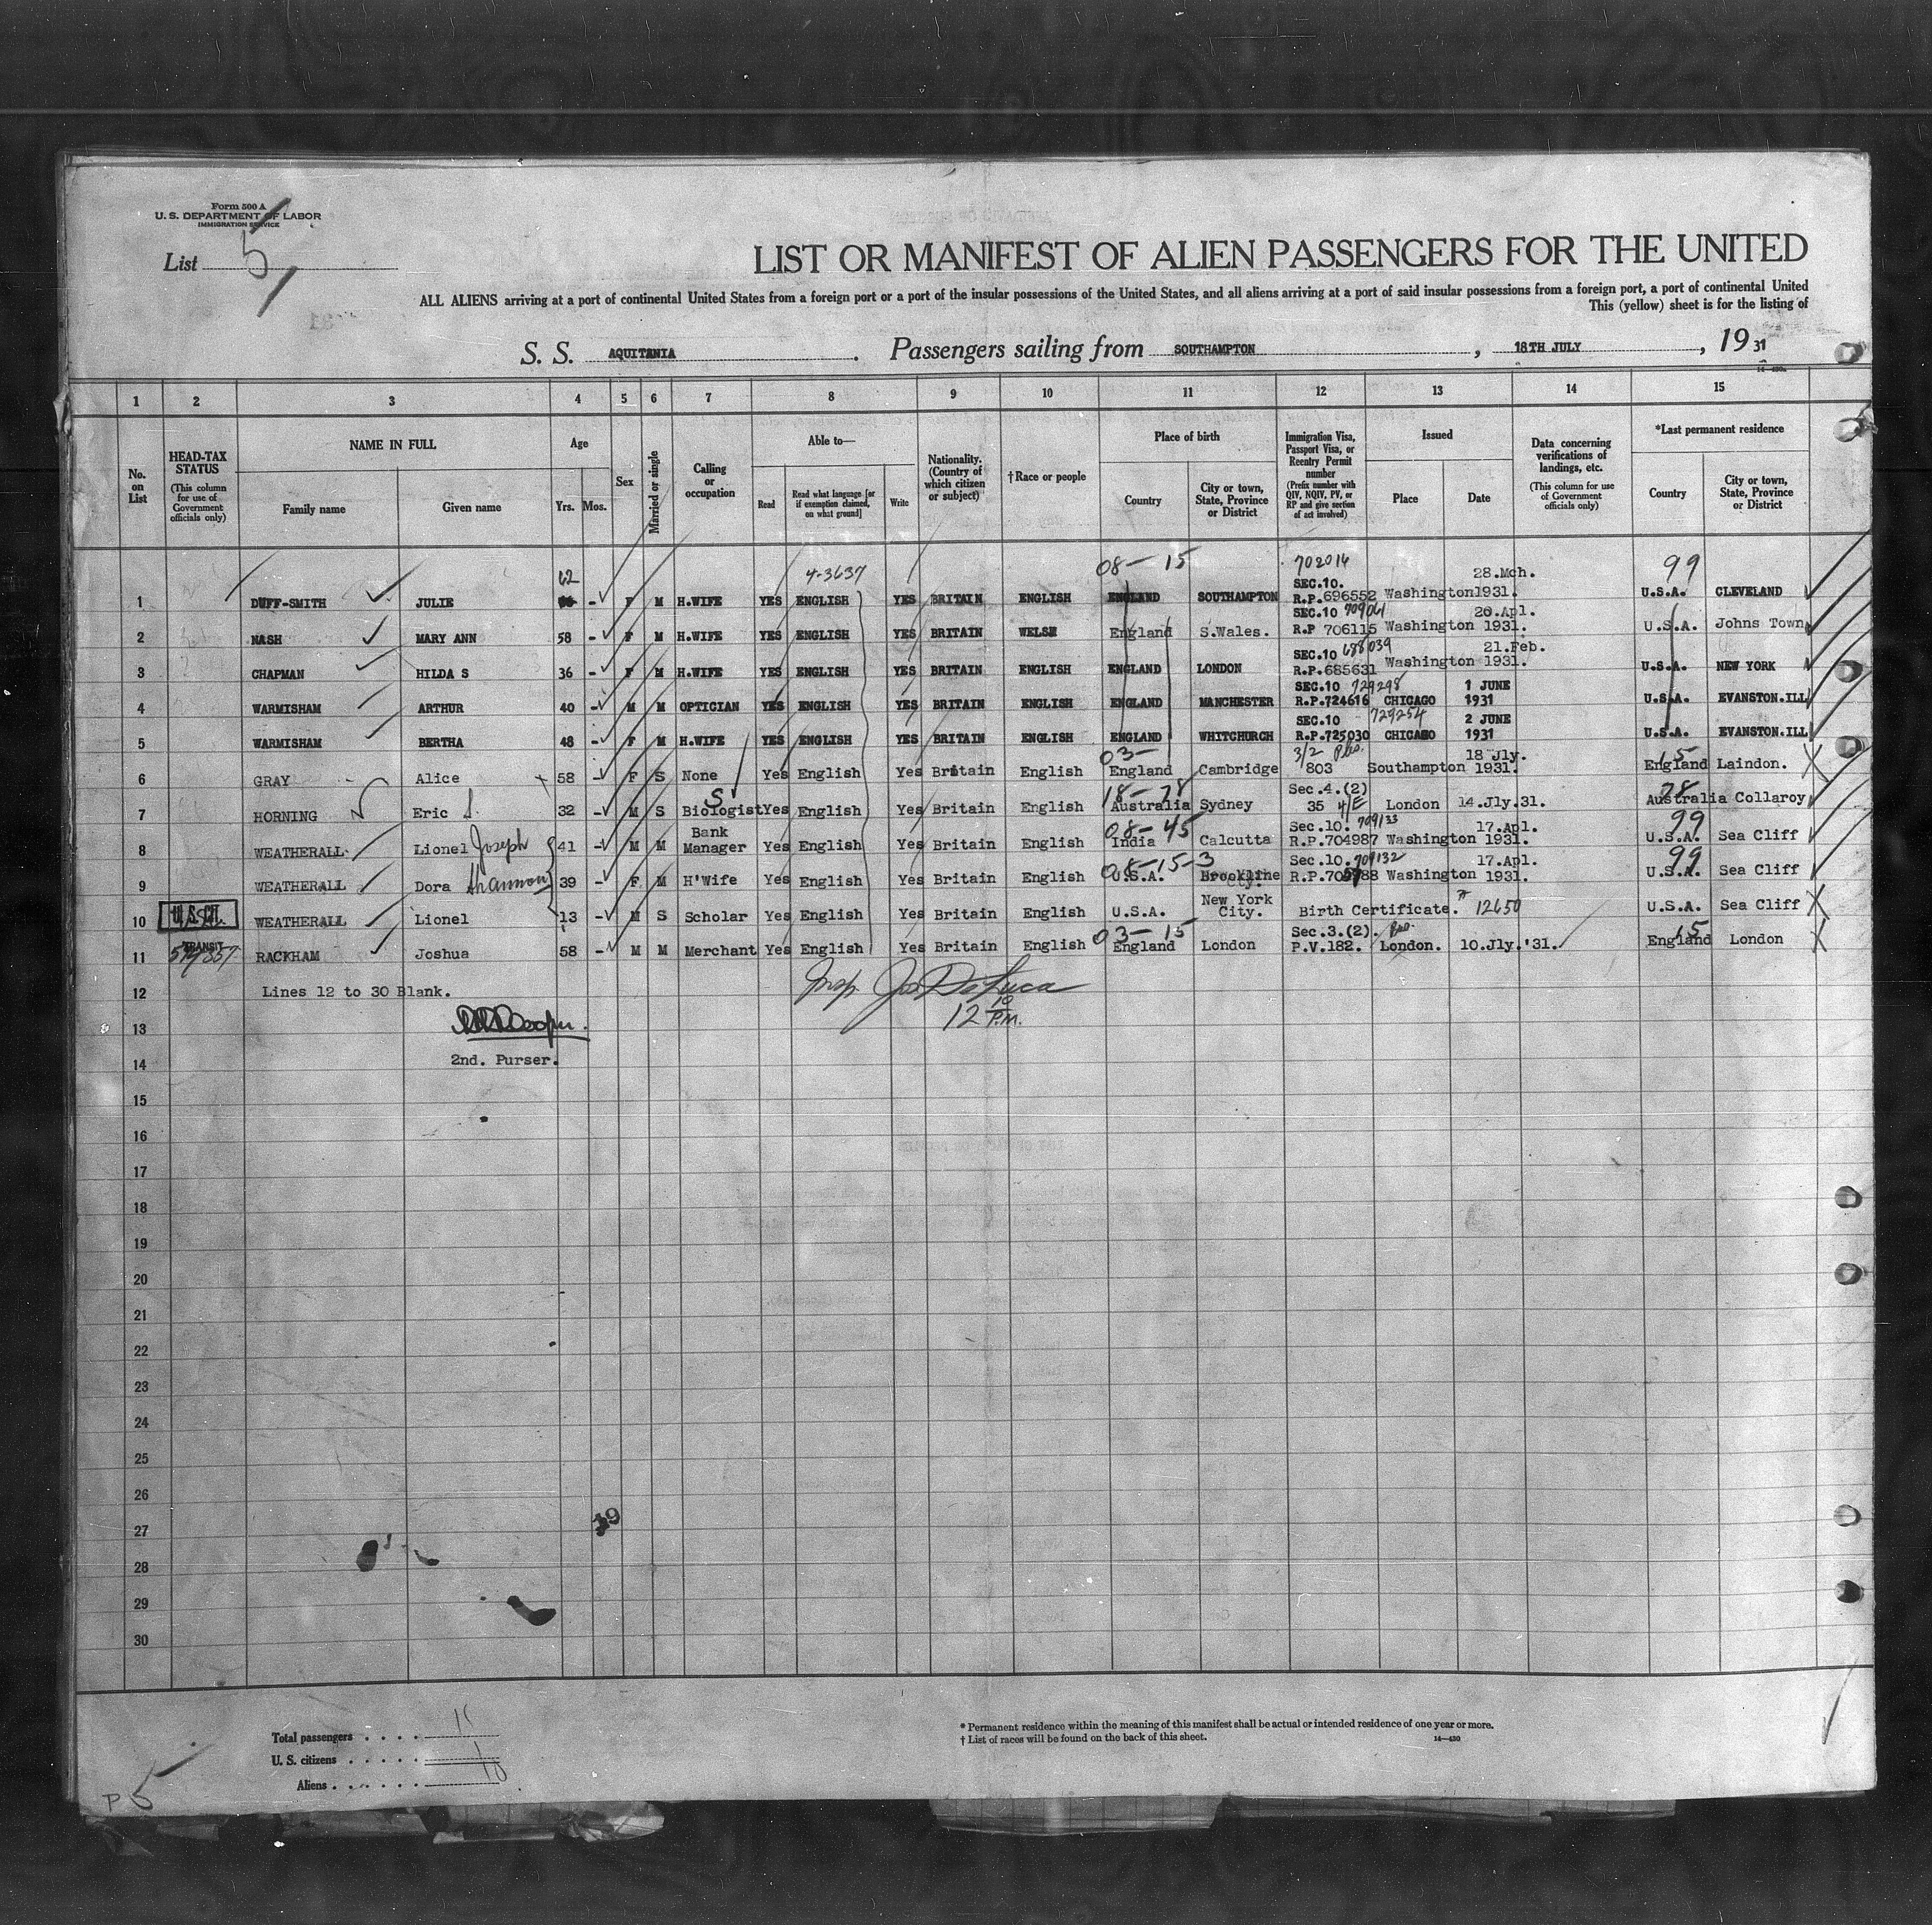 Form 500 A
U. S. DEPARTMENT OF LABOR
IMMIGRATION SERVICE
List 5
LIST OR MANIFEST OF ALIEN PASSENGERS FOR THE UNITED
ALL ALIENS arriving at a port of continental United States from a foreign port or a port of the insular possessions of the United States, and all aliens arriving at a port of said insular possessions from a foreign port, a port of continental United
This (yellow) sheet is for the listing of
S. S. AQUITANIA. Passengers sailing from SOUTHAMPTON, 18TH JULY, 1931
1 2 3 4 5 6 7 8 9 10 11 12 13 14 15
No. on List
HEAD-TAX STATUS (This column for use of Government officials only)
NAME IN FULL
Family name Given name
Age
Yrs. Mos.
Sex
Married or single
Calling or occupation
Able to—
Read Read what language [or if exemption claimed, on what ground] Write
Nationality. (Country of which citizen or subject)
†Race or people
Place of birth
Country City or town, State, Province or District
Immigration Visa, Passport Visa, or Reentry Permit number (Prefix number with QIV, NQIV, PV, or RP and give section of act involved)
Issued
Place Date
Data concerning verifications of landings, etc. (This column for use of Government officials only)
*Last permanent residence
Country City or town, State, Province or District
62 4-3637 08-15 702014 28.Mch. 99
1 DUFF-SMITH JULIE - F M H.WIFE YES ENGLISH YES BRITAIN ENGLISH ENGLAND SOUTHAMPTON SEC.10. R.P.696552 Washington 1931. U.S.A. CLEVELAND
2 NASH MARY ANN 58 - F M H.WIFE YES ENGLISH YES BRITAIN WELSH England S.Wales. SEC.10 709061 R.P 706115 Washington 20.Apl. 1931. U.S.A. Johns Town
3 CHAPMAN HILDA S 36 - F M H.WIFE YES ENGLISH YES BRITAIN ENGLISH ENGLAND LONDON SEC.10 688039 R.P.685631 Washington 21.Feb. 1931. U.S.A. NEW YORK
4 WARMISHAM ARTHUR 40 - M M OPTICIAN YES ENGLISH YES BRITAIN ENGLISH ENGLAND MANCHESTER SEC.10 729298 R.P.724616 CHICAGO 1 JUNE 1931 U.S.A. EVANSTON.ILL
5 WARMISHAM BERTHA 48 - F M H.WIFE YES ENGLISH YES BRITAIN ENGLISH ENGLAND WHITCHURCH SEC.10 729254 R.P.725030 CHICAGO 2 JUNE 1931 U.S.A. EVANSTON.ILL
03- 3/2 18 Jly. 15
6 GRAY Alice 58 - F S None Yes English Yes Britain English England Cambridge 803 Southampton 1931. England Laindon.
S 18-78 Sec.4.(2) 78
7 HORNING Eric S. 32 - M S Biologist Yes English Yes Britain English Australia Sydney 35 London 14.Jly.31. Australia Collaroy
08-45 Sec.10. 709133 17.Apl. 99
8 WEATHERALL Lionel Joseph 41 - M M Bank Manager Yes English Yes Britain English India Calcutta R.P.704987 Washington 1931. U.S.A. Sea Cliff
08-15-3 Sec.10. 709132 17.Apl. 99
9 WEATHERALL Dora Shannon 39 - F M H'Wife Yes English Yes Britain English U.S.A. Brookline City. R.P.70 88 Washington 1931. U.S.A. Sea Cliff
10 WEATHERALL Lionel 13 - M S Scholar Yes English Yes Britain English U.S.A. New York City. Birth Certificate. 12650 U.S.A. Sea Cliff
TRANSIT 03-15 Sec.3.(2). 15
11 RACKHAM Joshua 58 - M M Merchant Yes English Yes Britain English England London P.V.182. London. 10.Jly.'31. England London
12 Lines 12 to 30 Blank.
Insp Jos DeLuca
12 10 P.M.
13
14 2nd. Purser.
15
16
17
18
19
20
21
22
23
24
25
26
27
28
29
30
Total passengers . . . . 11
U. S. citizens . . . . . 1
Aliens . . . . . . 10
* Permanent residence within the meaning of this manifest shall be actual or intended residence of one year or more.
† List of races will be found on the back of this sheet.
14—430
P 5